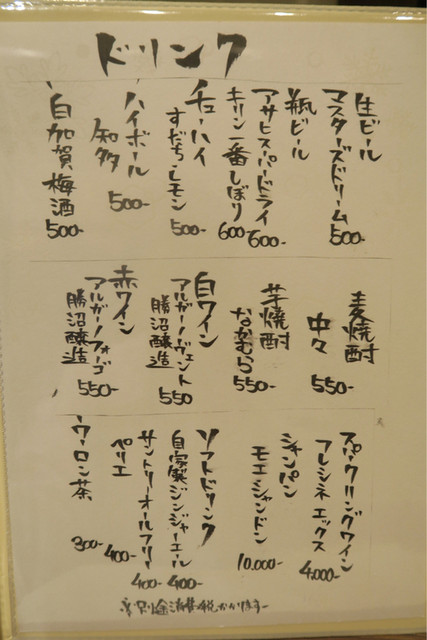 ドリンク
生ビール
マスターズドリーム 500-
瓶ビール
アサヒスーパードライ 600-
キリン一番しぼり 600
チューハイ
すだち・レモン 500-
ハイボール
知多 500-
白加賀梅酒 500-
麦焼酎
中々 550-
芋焼酎
なかむら 550-
白ワイン
アルガーノヴェント
勝沼醸造 550
赤ワイン
アルガーノフォーゴ
勝沼醸造 550-
スパークリングワイン
フレシネエックス 4.000-
シャンパン
モエシャンドン 10.000-
ソフトドリンク
自家製ジンジャーエール 400-
サントリーオールフリー 400-
ペリエ 400-
ウーロン茶 300-
別途消費税かかります